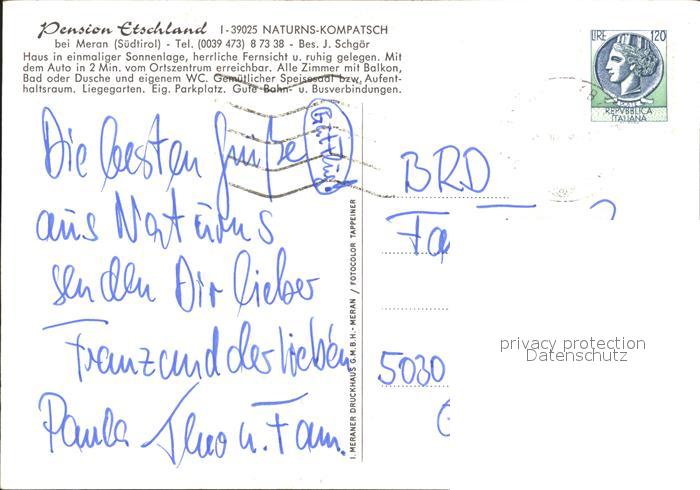 Pension Etschland I-39025 NATURNS-KOMPATSCH
bei Meran (Südtirol) - Tel. (0039 473) 8 73 38 - Bes. J. Schgör
Haus in einmaliger Sonnenlage, herrliche Fernsicht u. ruhig gelegen. Mit
dem Auto in 2 Min. vom Ortszentrum erreichbar. Alle Zimmer mit Balkon,
Bad oder Dusche und eigenem WC. Gemütlicher Speisesaal bzw. Aufent-
haltsraum. Liegegarten. Eig. Parkplatz. Gute Bahn- u. Busverbindungen.
LIRE 120
REPVBBLICA
ITALIANA
Die besten Grüße
aus Naturns
senden Dir lieber
Franz und der lieben
Paula Theo u. Fam.
I. MERANER DRUCKHAUS G.M.B.H.- MERAN / FOTOCOLOR TAPPEINER
BRD
Fa
5030
privacy protection
Datenschutz